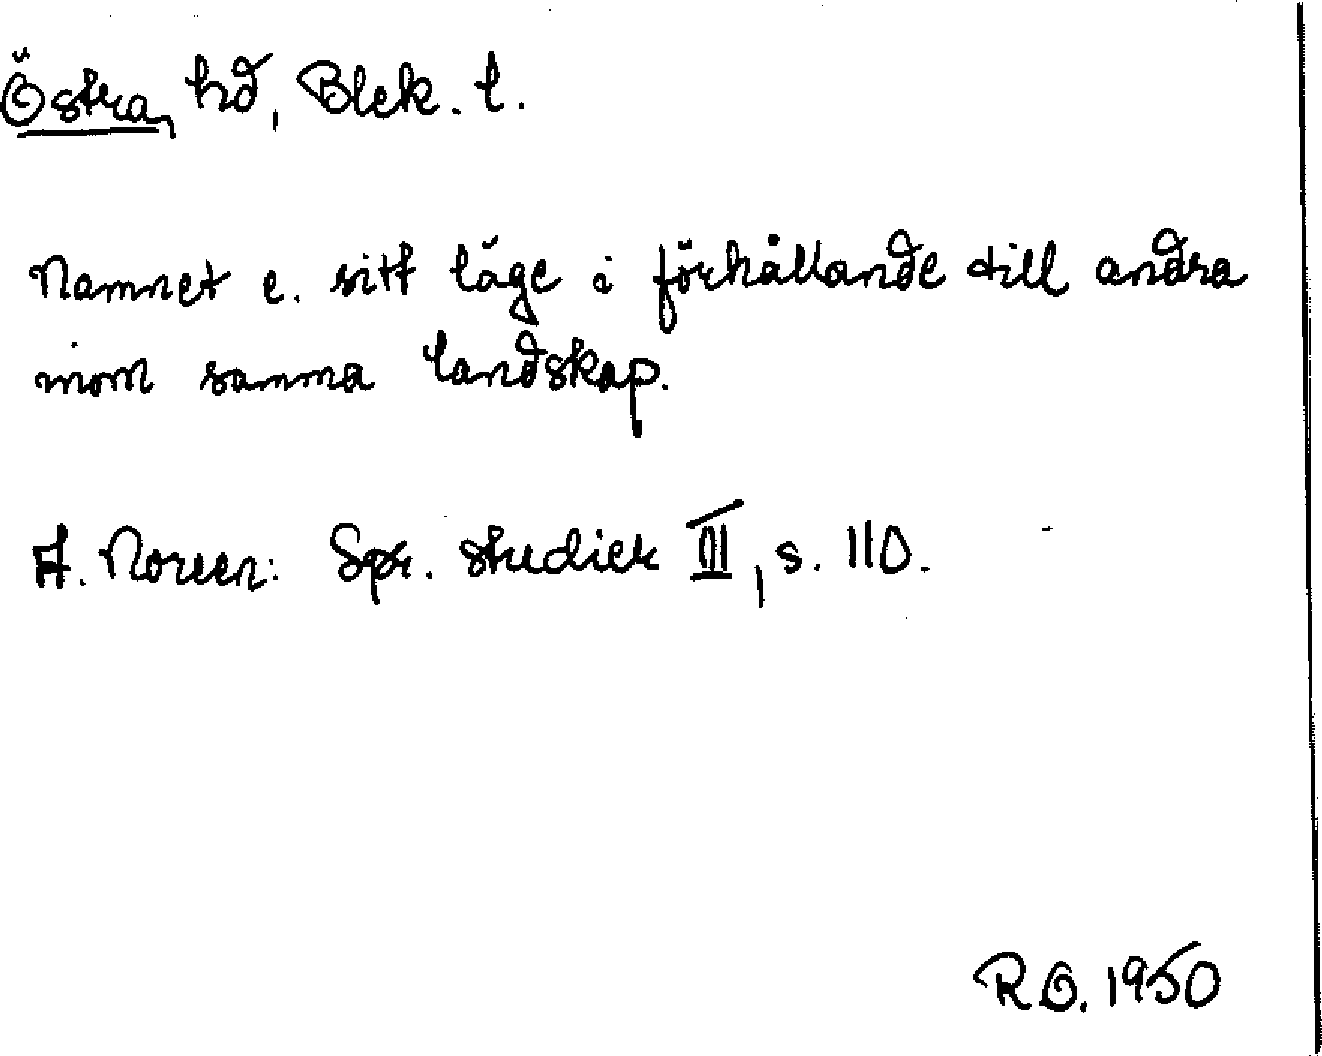 Östra, hd, Blek. l.
Namnet e. sitt läge i förhållande till andra
inom samma landskap.
A. Noreen: Spr. studier III, s. 110.
R.O. 1950